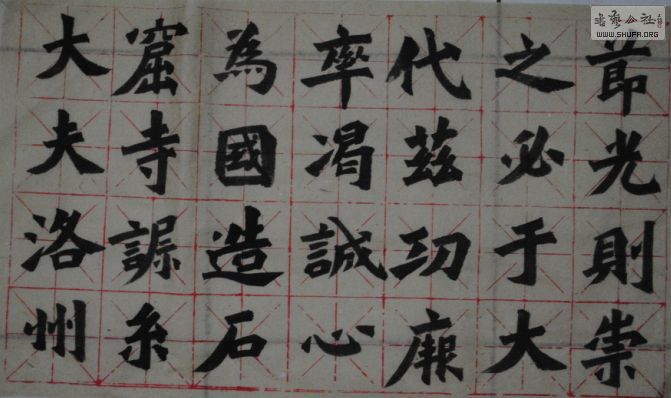 節光則崇
之必于大
代茲功厥
率渴誠心
為國造石
窟寺系
大夫洛州
书艺公社
WWW.SHUFA.ORG